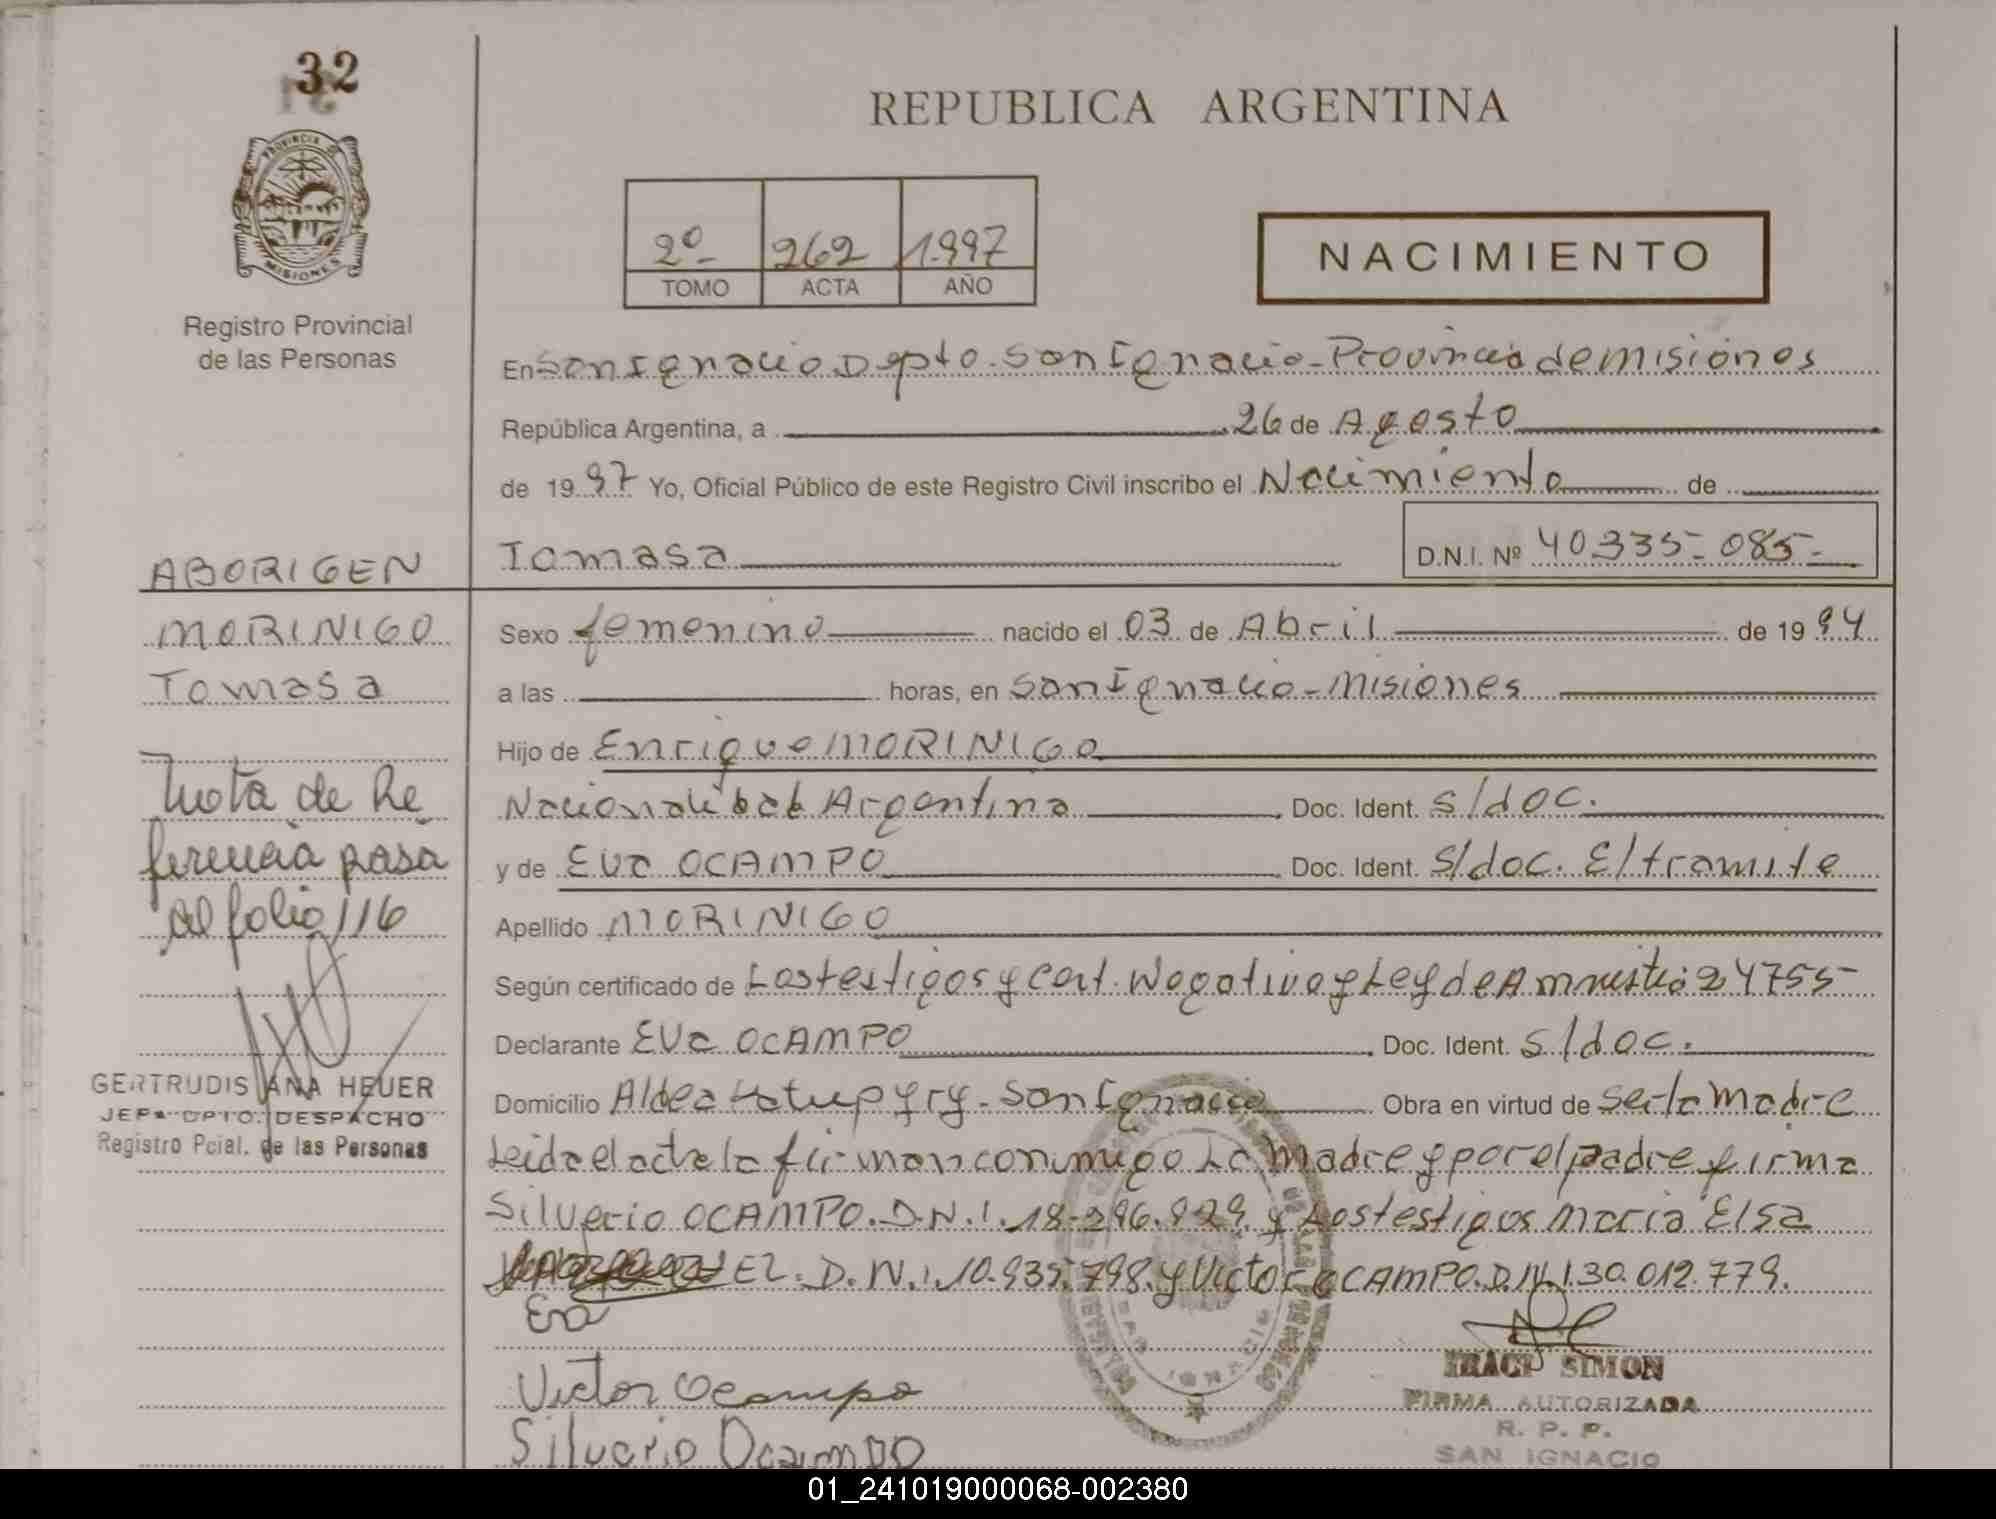 32
PROVINCIA DE
MISIONES
Registro Provincial
de las Personas
ABORIGEN
MORINIGO
Tomasa
Nota de Re
ferencia pasa
al folio 116
GERTRUDIS ANA HEUER
JEFa DPTO. DESPACHO
Registro Pcial. de las Personas
REPUBLICA ARGENTINA
2º 262 1.997
TOMO ACTA AÑO
NACIMIENTO
En San Ignacio Dpto. San Ignacio - Provincia de Misiones
República Argentina, a 26 de Agosto
de 1997 Yo, Oficial Público de este Registro Civil inscribo el Nacimiento de
Tomasa D.N.I. Nº 40.335.085.
Sexo femenino nacido el 03 de Abril de 1994
a las horas, en San Ignacio - Misiones
Hijo de Enrique MORINIGO
Nacionalidad Argentina Doc. Ident. S/doc.
y de Eva OCAMPO Doc. Ident. S/doc. E/tramite
Apellido MORINIGO
Según certificado de Los testigos y Cert. Negativo y Ley de Amnistia 24755
Declarante Eva OCAMPO Doc. Ident. S/doc.
Domicilio Aldea Katupyry - San Ignacio Obra en virtud de ser la Madre
Leida el acta la firman conmigo La Madre y por el padre firma
Silverio OCAMPO. D.N.I. 18.296.929. y Los testigos Maria Elsa
EZ. D.N.I. 10.935.798. y Victor OCAMPO. D.N.I. 30.012.779.
Eva
Victor Ocampo
Silverio Ocampo
SAN IGNACIO
IRACI SIMON
FIRMA AUTORIZADA
R. P. P.
SAN IGNACIO
01_241019000068-002380